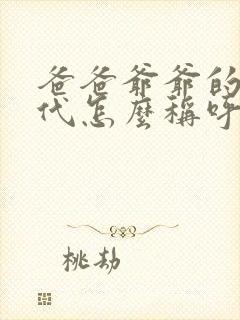 爸爸爷爷的
代怎麼稱呼
桃劫